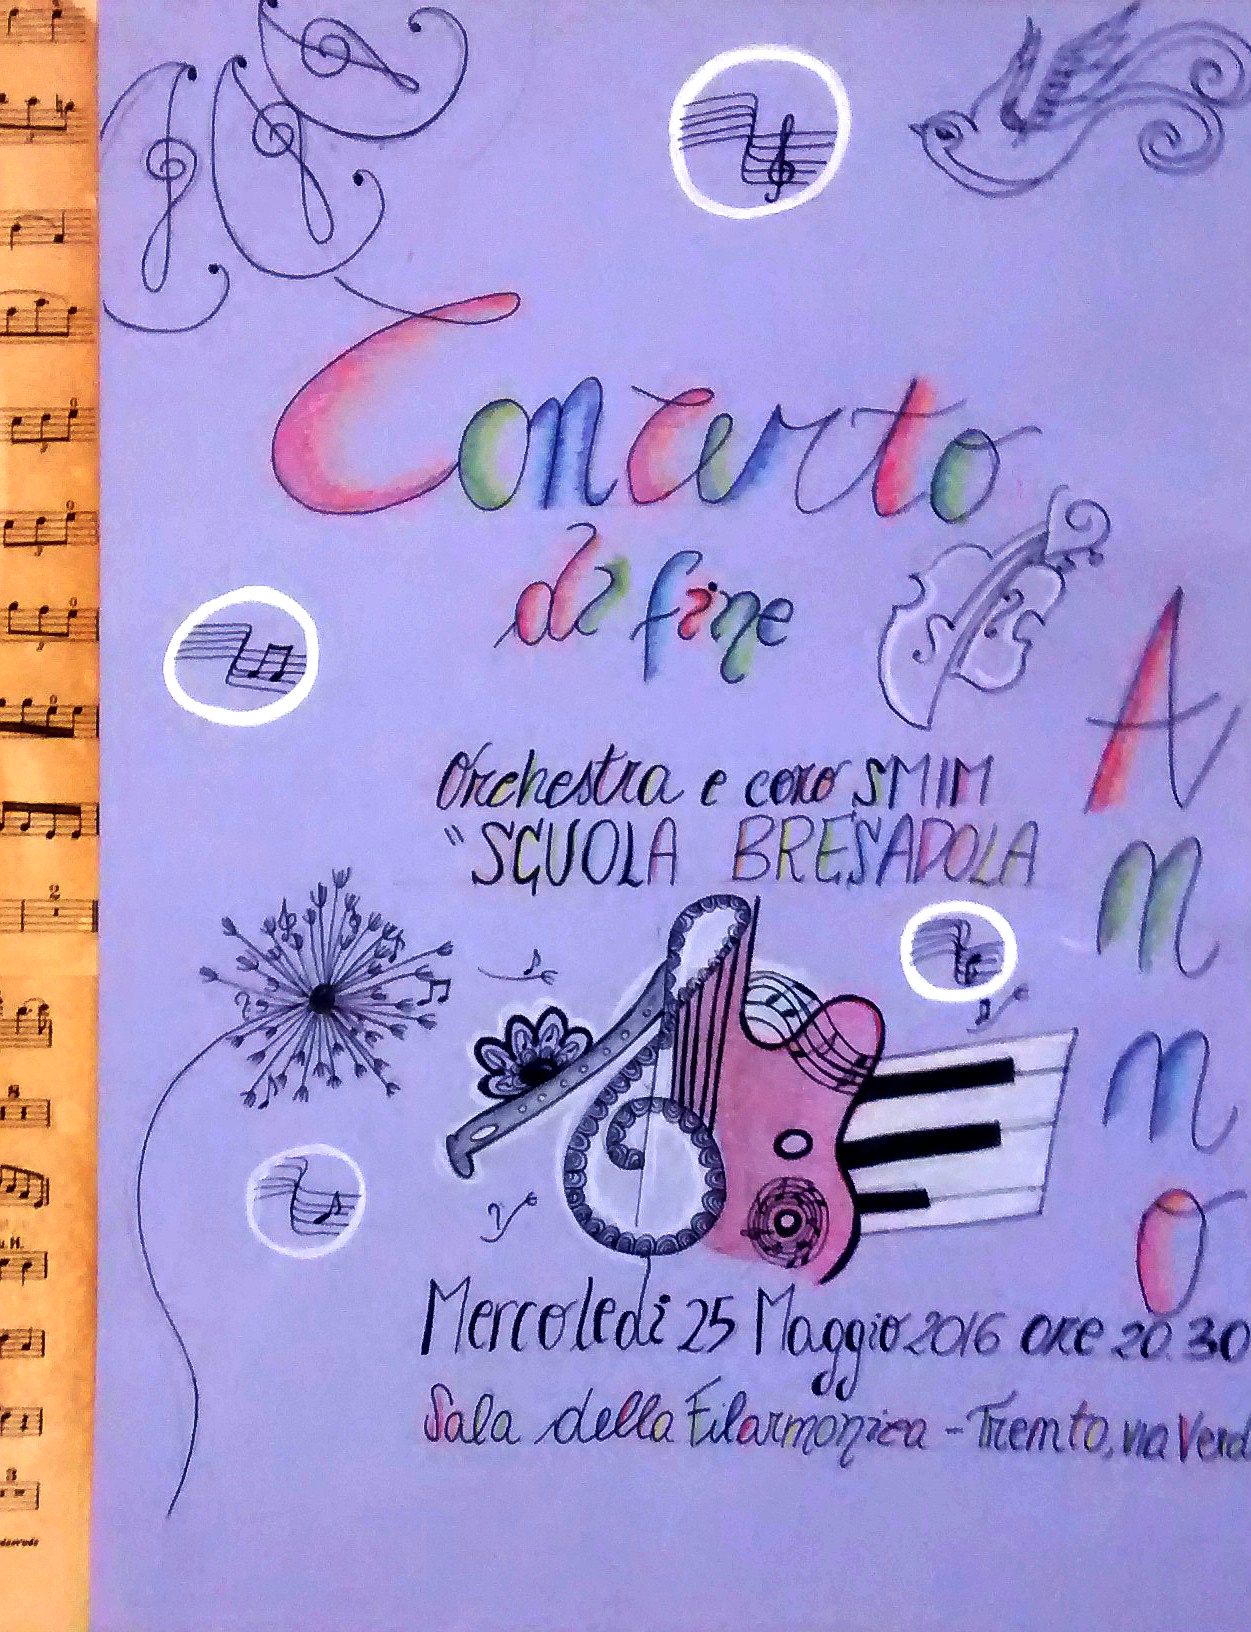 Concerto
di fine
Anno
Orchestra e coro SMIM
"SCUOLA BRESADOLA
Mercoledi 25 Maggio 2016 ore 20.30
Sala della Filarmonica - Trento, via Verd
2
8
3